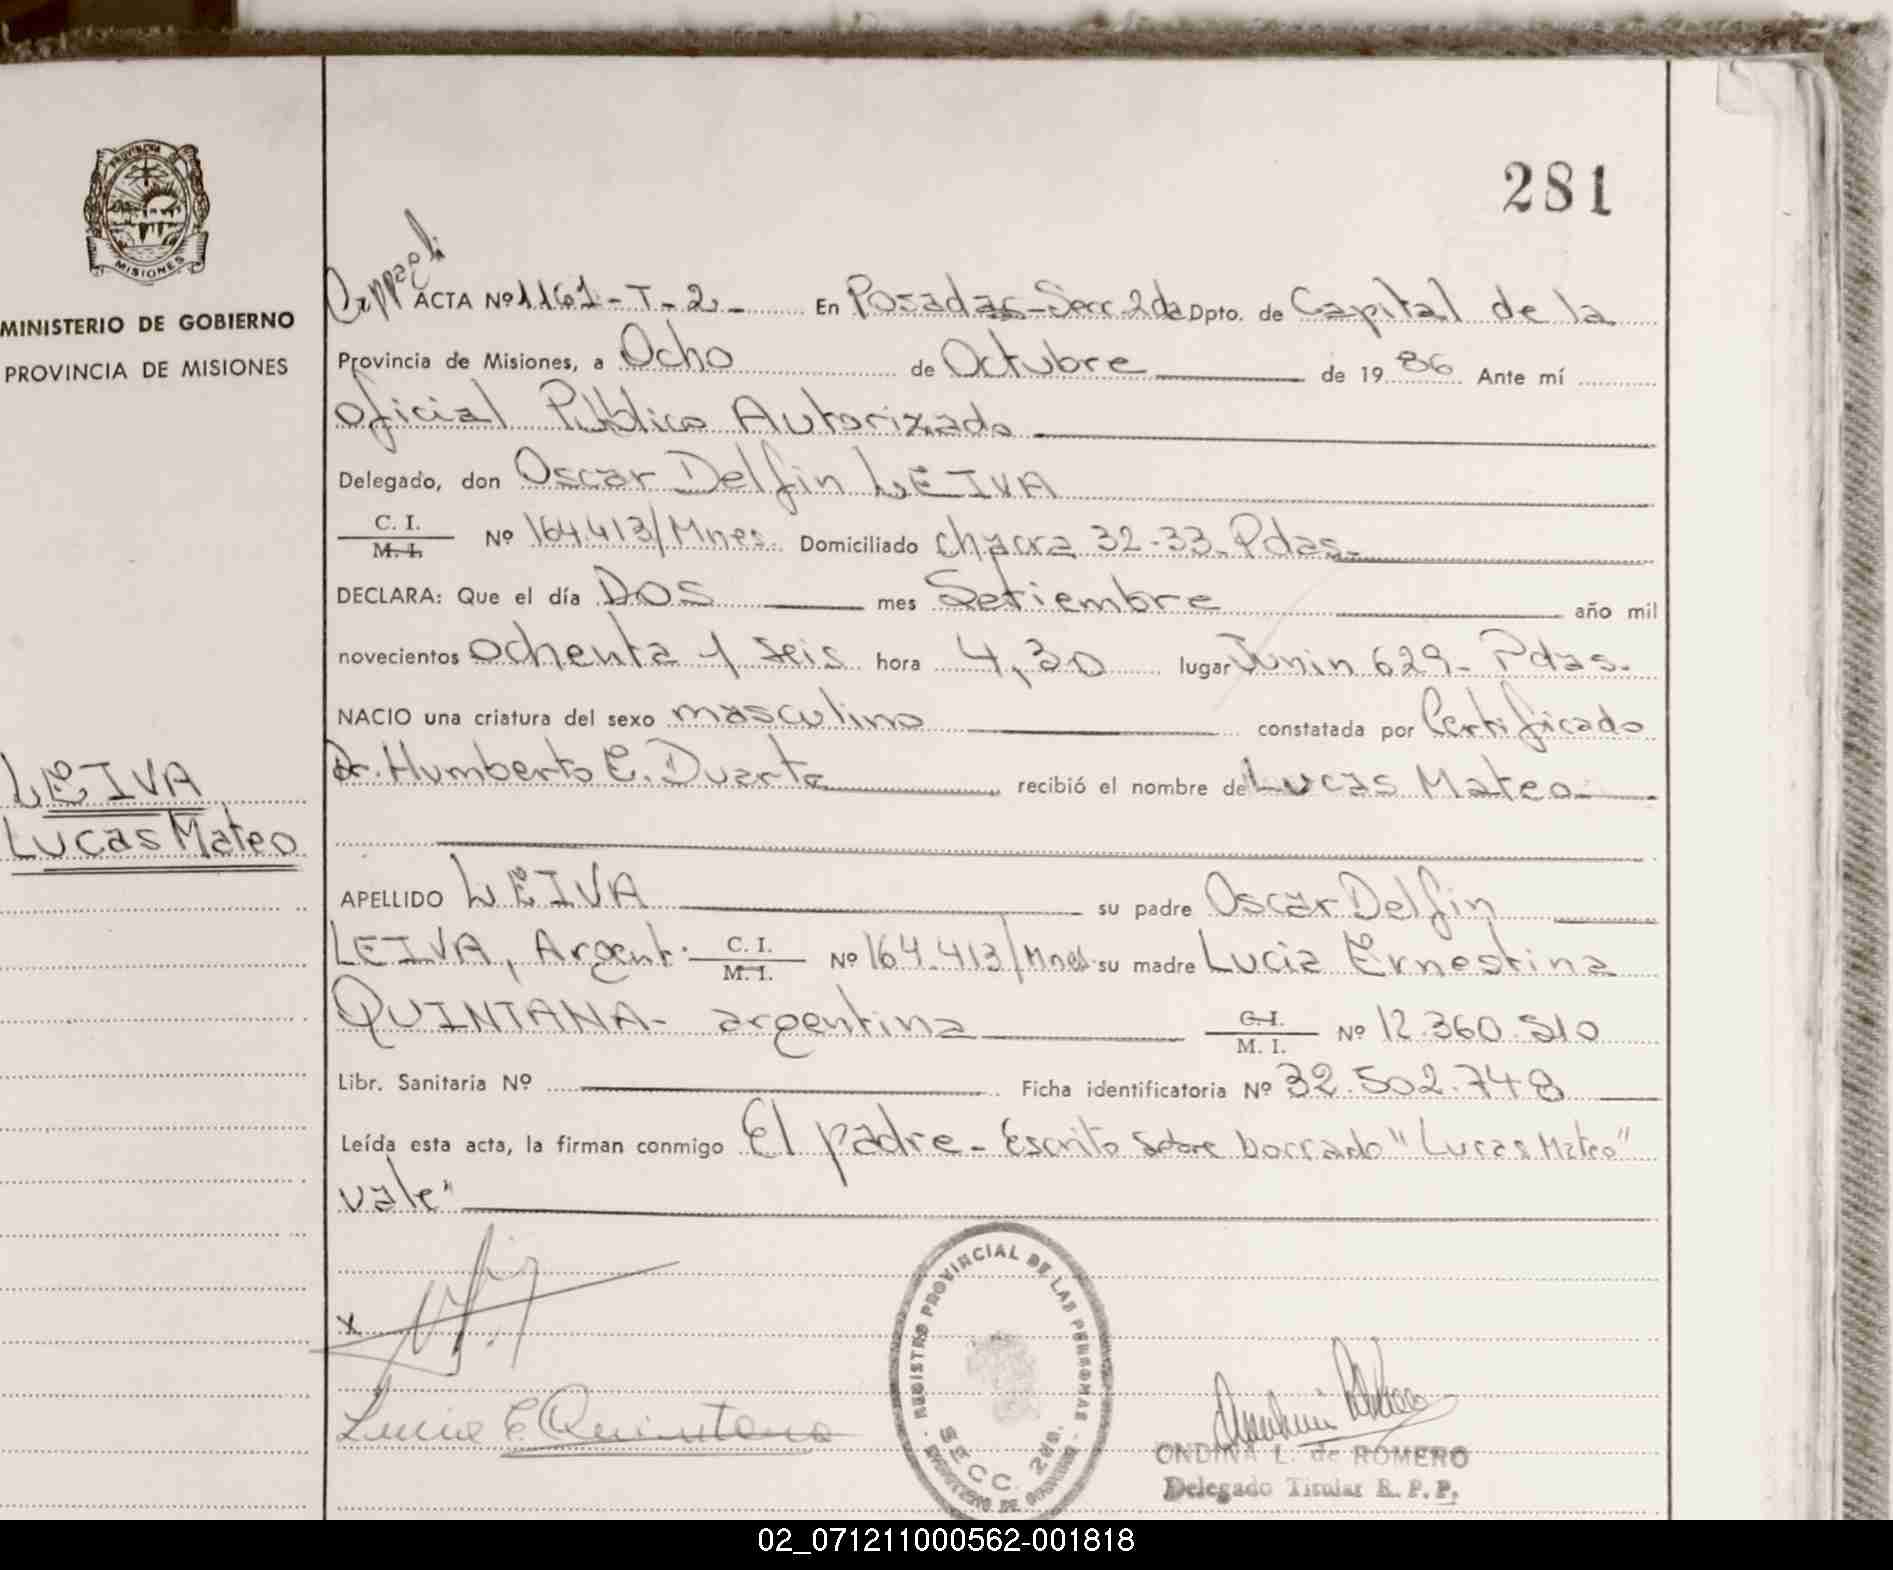 281
PROVINCIA DE
MISIONES
MINISTERIO DE GOBIERNO
PROVINCIA DE MISIONES
LEIVA
Lucas Mateo
ACTA Nº 1161-T-2- En Posadas-Secc. 2da Dpto. de Capital de la
Provincia de Misiones, a Ocho de Octubre de 1986 Ante mí
oficial Público Autorizado
Delegado, don Oscar Delfin LEIVA
C. I.
M. I. Nº 164.413/Mnes. Domiciliado chacra 32-33-Pdas-
DECLARA: Que el día DOS mes Setiembre año mil
novecientos ochenta y seis hora 4,30 lugar Junin 629- Pdas.
NACIO una criatura del sexo masculino constatada por Certificado
Dr. Humberto E. Duarte recibió el nombre de Lucas Mateo-
APELLIDO LEIVA su padre Oscar Delfin
LEIVA, Argent. C. I. M. I. Nº 164.413/Mnes su madre Lucia Ernestina
QUINTANA- argentina C. I. M. I. Nº 12.360.510
Libr. Sanitaria Nº Ficha identificatoria Nº 32.502.748
Leída esta acta, la firman conmigo El padre- Escrito sobre borrado "Lucas Mateo"
vale"
x
Lucia E Quintana
REGISTRO PROVINCIAL DE LAS PERSONAS
SECC. 2da.
ONDINA L. de ROMERO
Delegado Titular R. P. P.
02_071211000562-001818